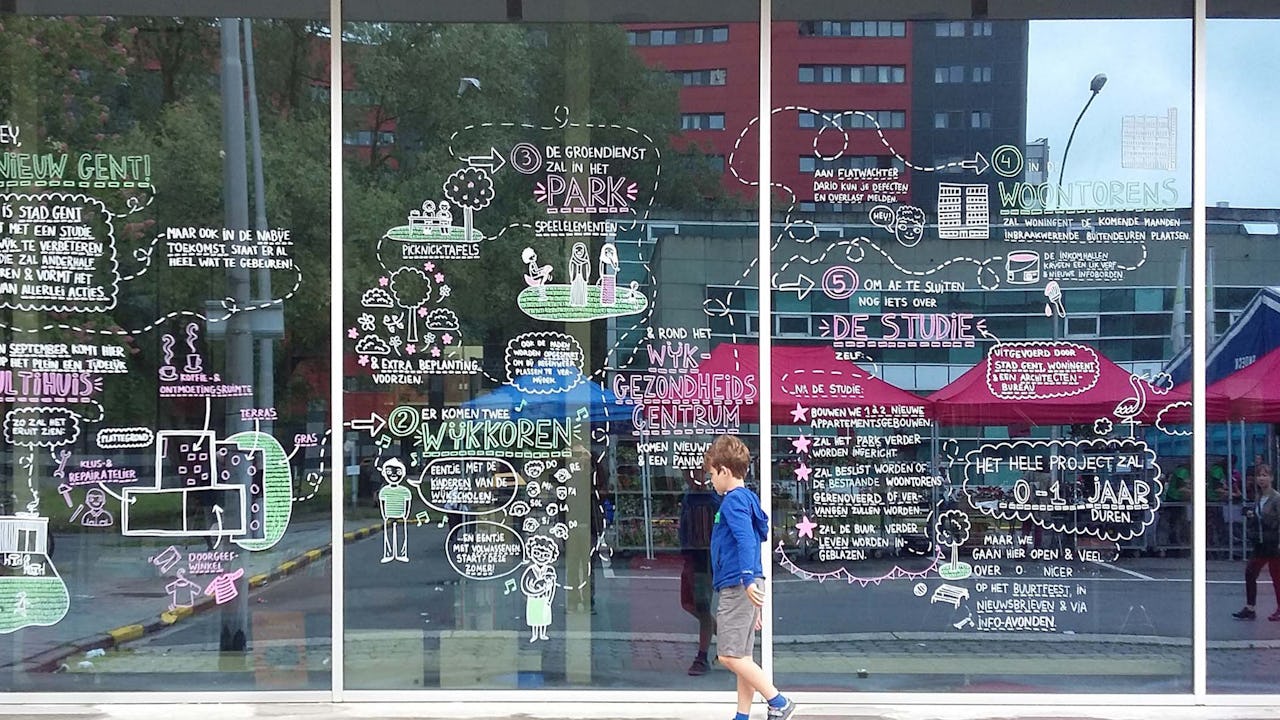 EY,
NIEUW GENT!
IS STAD GENT
T MET EEN STUDIE
WIJK TE VERBETEREN
DIE ZAL ANDERHALF
REN & VORMT HET
VAN ALLERLEI ACTIES.
MAAR OOK IN DE NABIJE
TOEKOMST STAAT ER AL
HEEL WAT TE GEBEUREN!
N SEPTEMBER KOMT HIER
OP HET PLEIN EEN TIJDELIJK
ULTIHUIS
ZO ZAL HET
ERUIT ZIEN:
PLATTEGROND
KOFFIE- &
ONTMOETINGSRUIMTE
TERRAS
GRAS
KLUS- &
REPARATIELIER
DOORGEEF-
WINKEL
3 DE GROENDIENST
ZAL IN HET
PARK
SPEELELEMENTEN
PICKNICKTAFELS
& EXTRA BEPLANTING
VOORZIEN.
OOK DE PADEN
WORDEN
OM ER
PLASSEN TE VER-
MIJDEN.
& ROND HET
WIJK-
GEZONDHEIDS
CENTRUM
KOMEN NIEUWE
& EEN PANNA
2 ER KOMEN TWEE
WIJKKOREN
EENTJE MET DE
KINDEREN VAN DE
WIJKSCHOLEN...
DO RE
MI FA
SOL LA
SI DO
...EN EENTJE
MET VOLWASSENEN
START DEZE
ZOMER!
AAN FLATWACHTER
DARIO KUN JE DEFECTEN
EN OVERLAST MELDEN.
HEY!
4 IN DE
WOONTORENS
ZAL WONINGENT DE KOMENDE MAANDEN
INBRAAKWERENDE BUITENDEUREN PLAATSEN.
DE INKOMHALLEN
KRIJGEN EEN LIK VERF
& NIEUWE INFOBORDEN
5 OM AF TE SLUITEN
NOG IETS OVER
DE STUDIE
ZELF:
UITGEVOERD DOOR
STAD GENT, WONINGENT
& EIN ARCHITECTEN
BUREAU
...NA DE STUDIE:
BOUWEN WE 122 NIEUWE
APPARTEMENTSGEBOUWEN.
ZAL HET PARK VERDER
WORDEN INGERICHT.
ZAL BESLIST WORDEN OF
DE BESTAANDE WOONTORENS
GERENOVEERD OF VER-
VANGEN ZULLEN WORDEN.
ZAL DE BUURT VERDER
LEVEN WORDEN IN-
GEBLAZEN.
HET HELE PROJECT ZAL
0-1 JAAR
DUREN
MAAR WE
GAAN HIER OPEN & VEEL
OVER
OP HET BUURTFEEST, IN
NIEUWSBRIEVEN & VIA
INFO-AVONDEN.